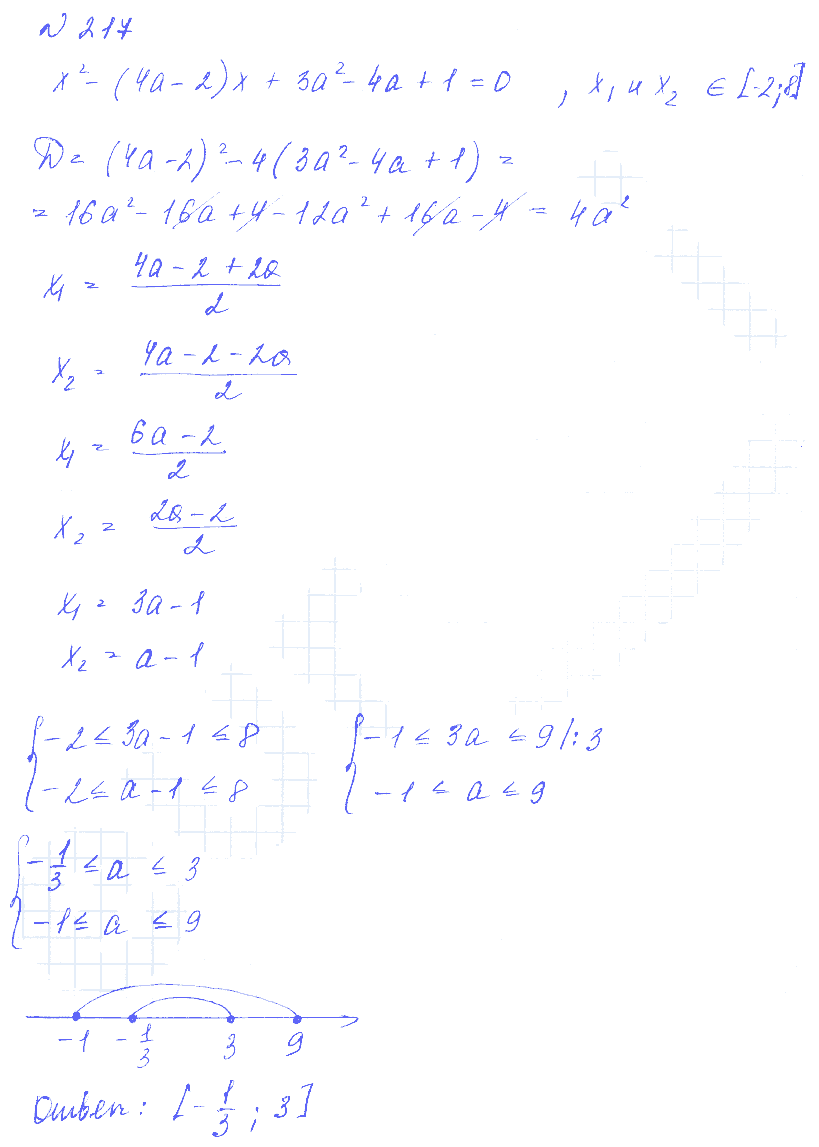 № 217
x² - (4a - 2)x + 3a² - 4a + 1 = 0 , x₁ и x₂ ∈ [-2; 8]
D = (4a - 2)² - 4(3a² - 4a + 1) =
= 16a² - 16a + 4 - 12a² + 16a - 4 = 4a²
x₁ = (4a - 2 + 2a)/2
x₂ = (4a - 2 - 2a)/2
x₁ = (6a - 2)/2
x₂ = (2a - 2)/2
x₁ = 3a - 1
x₂ = a - 1
{ -2 ≤ 3a - 1 ≤ 8 { -1 ≤ 3a ≤ 9 /: 3
-2 ≤ a - 1 ≤ 8 -1 ≤ a ≤ 9
{ -1/3 ≤ a ≤ 3
-1 ≤ a ≤ 9
-1 -1/3 3 9
Ответ: [-1/3 ; 3]